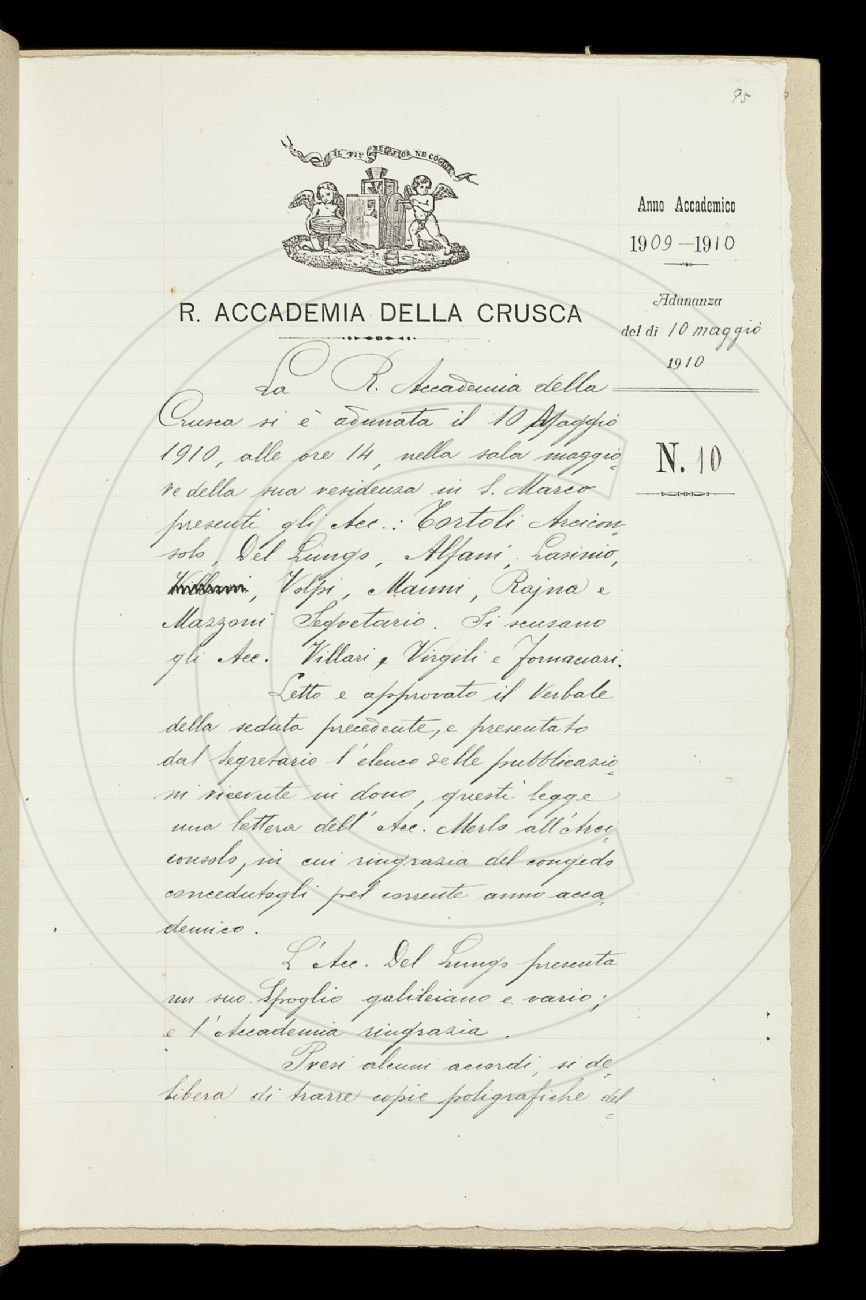 95
IL PIÙ BEL FIOR NE COGLIE
Anno Accademico
1909-1910
Adunanza
del dì 10 maggio
1910
N. 10
R. ACCADEMIA DELLA CRUSCA
La R. Accademia della
Crusca si è adunata il 10 Maggio
1910, alle ore 14, nella sala maggio-
re della sua residenza in S. Marco
presenti gli Acc.: Tortoli Arcicon-
solo, Del Lungo, Alfani, Lasinio,
, Volpi, Manni, Rajna e
Mazzoni Segretario. Si scusano
gli Acc. Villari, Virgili e Fornaciari.
Letto e approvato il Verbale
della seduta precedente, e presentato
dal Segretario l'elenco delle pubblicazio-
ni ricevute in dono, questi legge
una lettera dell'Acc. Merlo all'Arci-
consolo, in cui ringrazia del congedo
concedutogli pel corrente anno acca-
demico.
L'Acc. Del Lungo presenta
un suo Spoglio galileiano e vario;
e l'Accademia ringrazia.
Presi alcuni accordi, si de-
libera di trarre copie poligrafiche del-